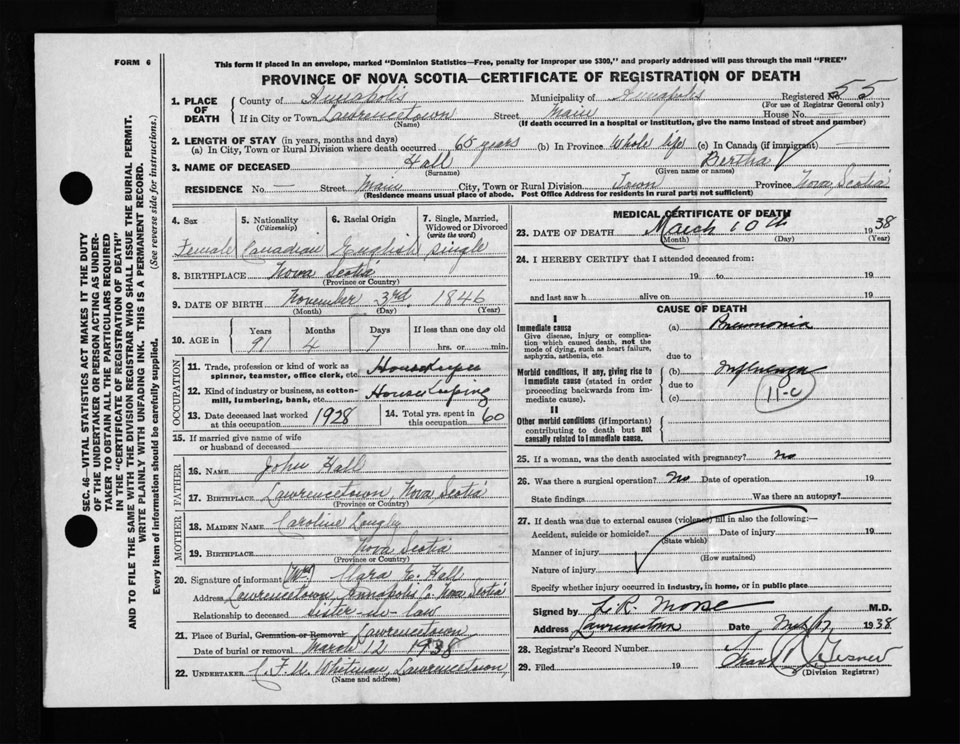 FORM 6
This form if placed in an envelope, marked "Dominion Statistics—Free, penalty for improper use $300," and properly addressed will pass through the mail "FREE"
PROVINCE OF NOVA SCOTIA—CERTIFICATE OF REGISTRATION OF DEATH
1. PLACE OF DEATH
County of Annapolis Municipality of Annapolis Registered No. 55
(For use of Registrar General only)
If in City or Town Lawrencetown Street Main House No.
(Name) (If death occurred in a hospital or institution, give the name instead of street and number)
2. LENGTH OF STAY (in years, months and days)
(a) In City, Town or Rural Division where death occurred 65 years (b) In Province Whole life (c) In Canada (if immigrant)
3. NAME OF DECEASED Hall Bertha
(Surname) (Given name or names)
RESIDENCE No. — Street Main City, Town or Rural Division Town Province Nova Scotia
(Residence means usual place of abode. Post Office Address for residents in rural parts not sufficient)
4. Sex
Female
5. Nationality
(Citizenship)
Canadian
6. Racial Origin
English
7. Single, Married, Widowed or Divorced
(write the word)
Single
8. BIRTHPLACE Nova Scotia
(Province or Country)
9. DATE OF BIRTH November 3rd 1846
(Month) (Day) (Year)
10. AGE in
Years Months Days If less than one day old
91 4 7 hrs. or min.
OCCUPATION
11. Trade, profession or kind of work as spinner, teamster, office clerk, etc. Housekeeper
12. Kind of industry or business, as cotton-mill, lumbering, bank, etc. Housekeeping
13. Date deceased last worked at this occupation 1928
14. Total yrs. spent in this occupation 60
15. If married give name of wife or husband of deceased
FATHER
16. NAME John Hall
17. BIRTHPLACE Lawrencetown, Nova Scotia
(Province or Country)
MOTHER
18. MAIDEN NAME Caroline Longley
19. BIRTHPLACE Nova Scotia
(Province or Country)
20. Signature of informant (Mrs) Clara E. Hall
Address Lawrencetown, Annapolis Co. Nova Scotia
Relationship to deceased sister-in-law
21. Place of Burial, Cremation or Removal Lawrencetown
Date of burial or removal March 12 1938
22. UNDERTAKER C. F. M. Whitman, Lawrencetown,
(Name and address)
MEDICAL CERTIFICATE OF DEATH
23. DATE OF DEATH March 10th 1938
(Month) (Day) (Year)
24. I HEREBY CERTIFY that I attended deceased from:
19 to 19
and last saw h alive on 19
CAUSE OF DEATH
I
Immediate cause
Give disease, injury or complication which caused death, not the mode of dying, such as heart failure, asphyxia, asthenia, etc.
(a) Pneumonia
due to
Morbid conditions, if any, giving rise to immediate cause (stated in order proceeding backwards from immediate cause).
(b) Influenza
due to
11-c
(c)
II
Other morbid conditions (if important) contributing to death but not causally related to immediate cause.
25. If a woman, was the death associated with pregnancy? No
26. Was there a surgical operation? No Date of operation 19
State findings Was there an autopsy?
27. If death was due to external causes (violence) fill in also the following:—
Accident, suicide or homicide? Date of injury 19
(State which)
Manner of injury
(How sustained)
Nature of injury
Specify whether injury occurred in industry, in home, or in public place
Signed by L. R. Morse M.D.
Address Lawrencetown Date 1938
28. Registrar's Record Number
29. Filed 19
(Division Registrar)
SEC. 46—VITAL STATISTICS ACT MAKES IT THE DUTY
OF THE UNDERTAKER OR PERSON ACTING AS UNDER-
TAKER TO OBTAIN ALL THE PARTICULARS REQUIRED
IN THE "CERTIFICATE OF REGISTRATION OF DEATH"
AND TO FILE THE SAME WITH THE DIVISION REGISTRAR WHO SHALL ISSUE THE BURIAL PERMIT.
WRITE PLAINLY WITH UNFADING INK. THIS IS A PERMANENT RECORD.
Every item of Information should be carefully supplied. (See reverse side for instructions.)